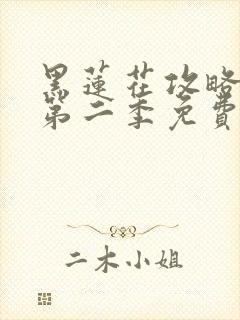 黑蓮花攻略
第二季免費
二木小姐